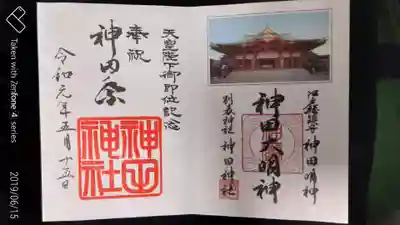 天皇陛下御即位記念
奉祝
神田祭
令和元年五月十五日
神田神社
江戸総鎮守 神田明神
神田大明神
別表神社 神田神社
Taken with Zenfone 4 series
2019/06/15